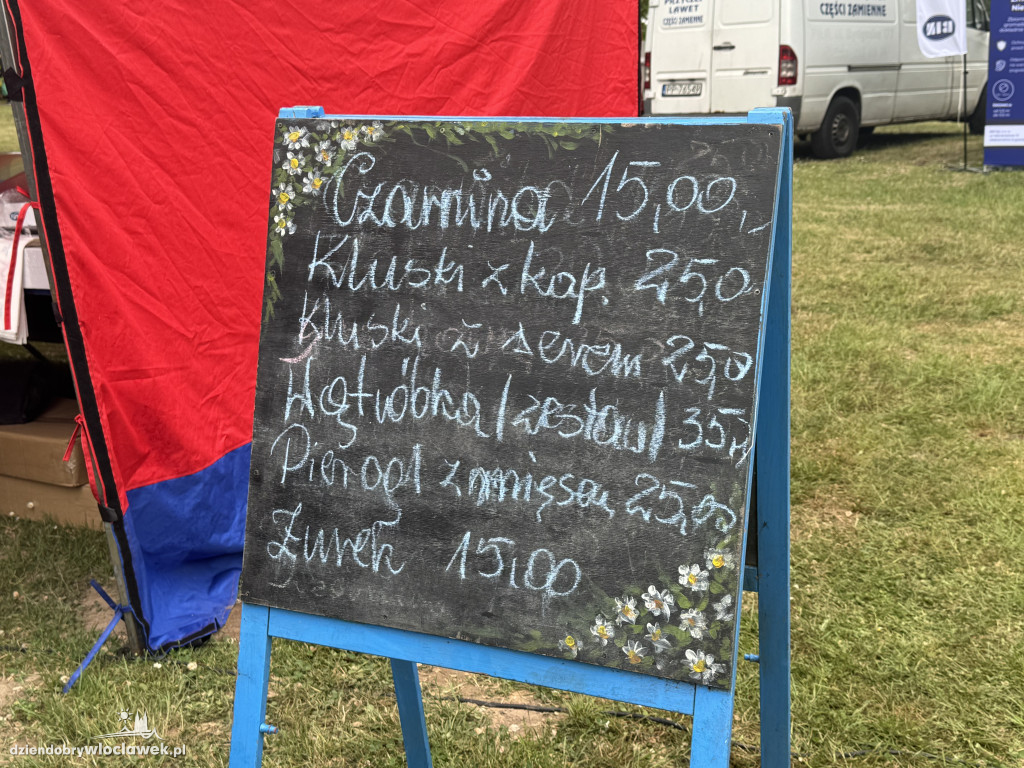 LAWET
CZĘŚCI ZAMIENNE
CZĘŚCI ZAMIENNE
Czarnina 15,00,-
Kluski z kap. 25,0
Kluski z serem 25,0
Wątróbka /zestaw/ 35
Pierogi z mięsem 25,00
Żurek 15,00
dziendobrywloclawek.pl